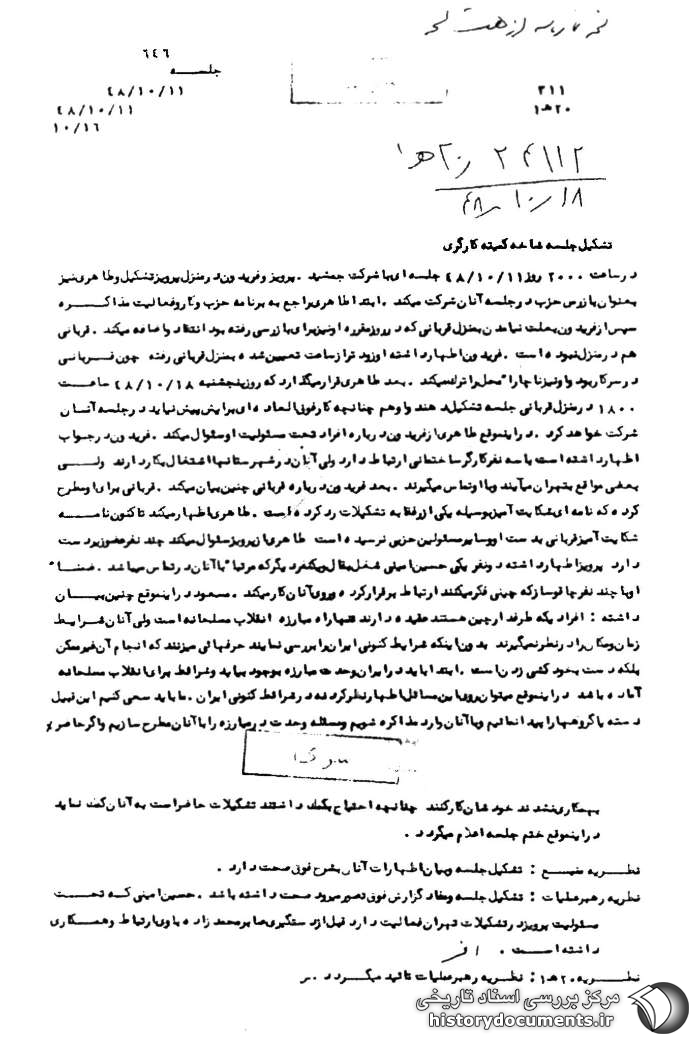 ۶۴۶
جلسه
۴۸/۱۰/۱۱
۴۸/۱۰/۱۱
۱۰/۱۶
۳۱۱
۲۰ه‍۱
۲۰ه‍۱
۴۸/۱۰/۱۸
تشکیل جلسه شاخه کمیته کارگری
در ساعت ۲۰۰۰ روز ۴۸/۱۰/۱۱ جلسه ای با شرکت جمشید . پرویز و فریدون در منزل پرویز تشکیل و طاهری نیز
بعنوان بازرس حزب در جلسه آنان شرکت میکند . ابتدا طاهری راجع به برنامه حزب و کار و فعالیت مذاکره
سپس از فریدون بعلت نیامدن بمنزل قربانی که در روز مقرره او نیز برای بازرسی رفته بود انتقاد و اضافه میکند . قربانی
هم در منزل نبوده است . فریدون اظهار داشته او زودتر از ساعت تعیین شده بمنزل قربانی رفته چون قربانی
در سر کار بود و او نیز ناچاراً محل را ترک میکند . بعد طاهری قرار میگذارد که روز پنجشنبه ۴۸/۱۰/۱۸ ساعت
۱۸۰۰ در منزل قربانی جلسه تشکیل دهند و او هم چنانچه کار فوق العاده ای برایش پیش نیاید در جلسه آنان
شرکت خواهد کرد . در اینموقع طاهری از فریدون درباره افراد تحت مسئولیت او سئوال میکند . فریدون در جواب
اظهار داشته است با سه نفر کارگر ساختمانی ارتباط دارد ولی آنان در شهرستانها اشتغال بکار دارند ولی
بعضی مواقع بتهران میآیند و با او تماس میگیرند . بعد فریدون درباره قربانی چنین بیان میکند . قربانی برای او مطرح
کرده که نامه ای شکایت آمیز بوسیله یکی از رفقا به تشکیلات رد کرده است . طاهری اظهار میکند تاکنون نامه
شکایت آمیز قربانی بدست او و سایر مسئولین حزبی نرسیده است طاهری از پرویز سئوال میکند چند نفر عضو زیر دست
دارد پرویز اظهار داشته دو نفر یکی حسین امینی شغل بقال و یکنفر دیگر که مرتباً با آنان در تماس میباشد . ضمناً
او با چند نفر چاقوساز که چینی فکر میکنند ارتباط برقرار کرده و روی آنان کار میکند . مسعود در اینموقع چنین بیان
داشته : افرادیکه طرفدار چین هستند عقیده دارند تنها راه مبارزه انقلاب مسلحانه است ولی آنان شرایط
زمان و مکان را در نظر نمیگیرند بدون اینکه شرایط کنونی ایران را بررسی نمایند حرفهائی میزنند که انجام آن غیرممکن
بلکه دست بخودکشی زدن است . ابتدا باید در ایران وحدت مبارزه بوجود بیاید و شرائط برای انقلاب مسلحانه
آماده باشد در اینموقع میتوان روی این مسائل اظهارنظر کرد نه در شرائط کنونی ایران . ما باید سعی کنیم این قبیل
دسته یا گروهها را پیدا نمائیم و با آنان وارد مذاکره شویم و مسئله وحدت در مبارزه را با آنان مطرح سازیم و اگر حاضر
بهمکاری نشدند خودشان کار کنند چنانچه احتیاج بکمک داشتند تشکیلات حاضر است به آنان کمک نماید
در اینموقع ختم جلسه اعلام میگردد .
نظریه منبع : تشکیل جلسه و بیان اظهارات آنان بشرح فوق صحت دارد .
نظریه رهبر عملیات : تشکیل جلسه و مفاد گزارش فوق تصور میرود صحت داشته باشد . حسین امینی که تحت
مسئولیت پرویز در تشکیلات تهران فعالیت دارد قبل از دستگیری صابر محمدزاده با وی ارتباط و همکاری
داشته است .
نظریه ۲۰ه‍۱ : نظریه رهبر عملیات تائید میگردد .
مرکز بررسی اسناد تاریخی
historydocuments.ir